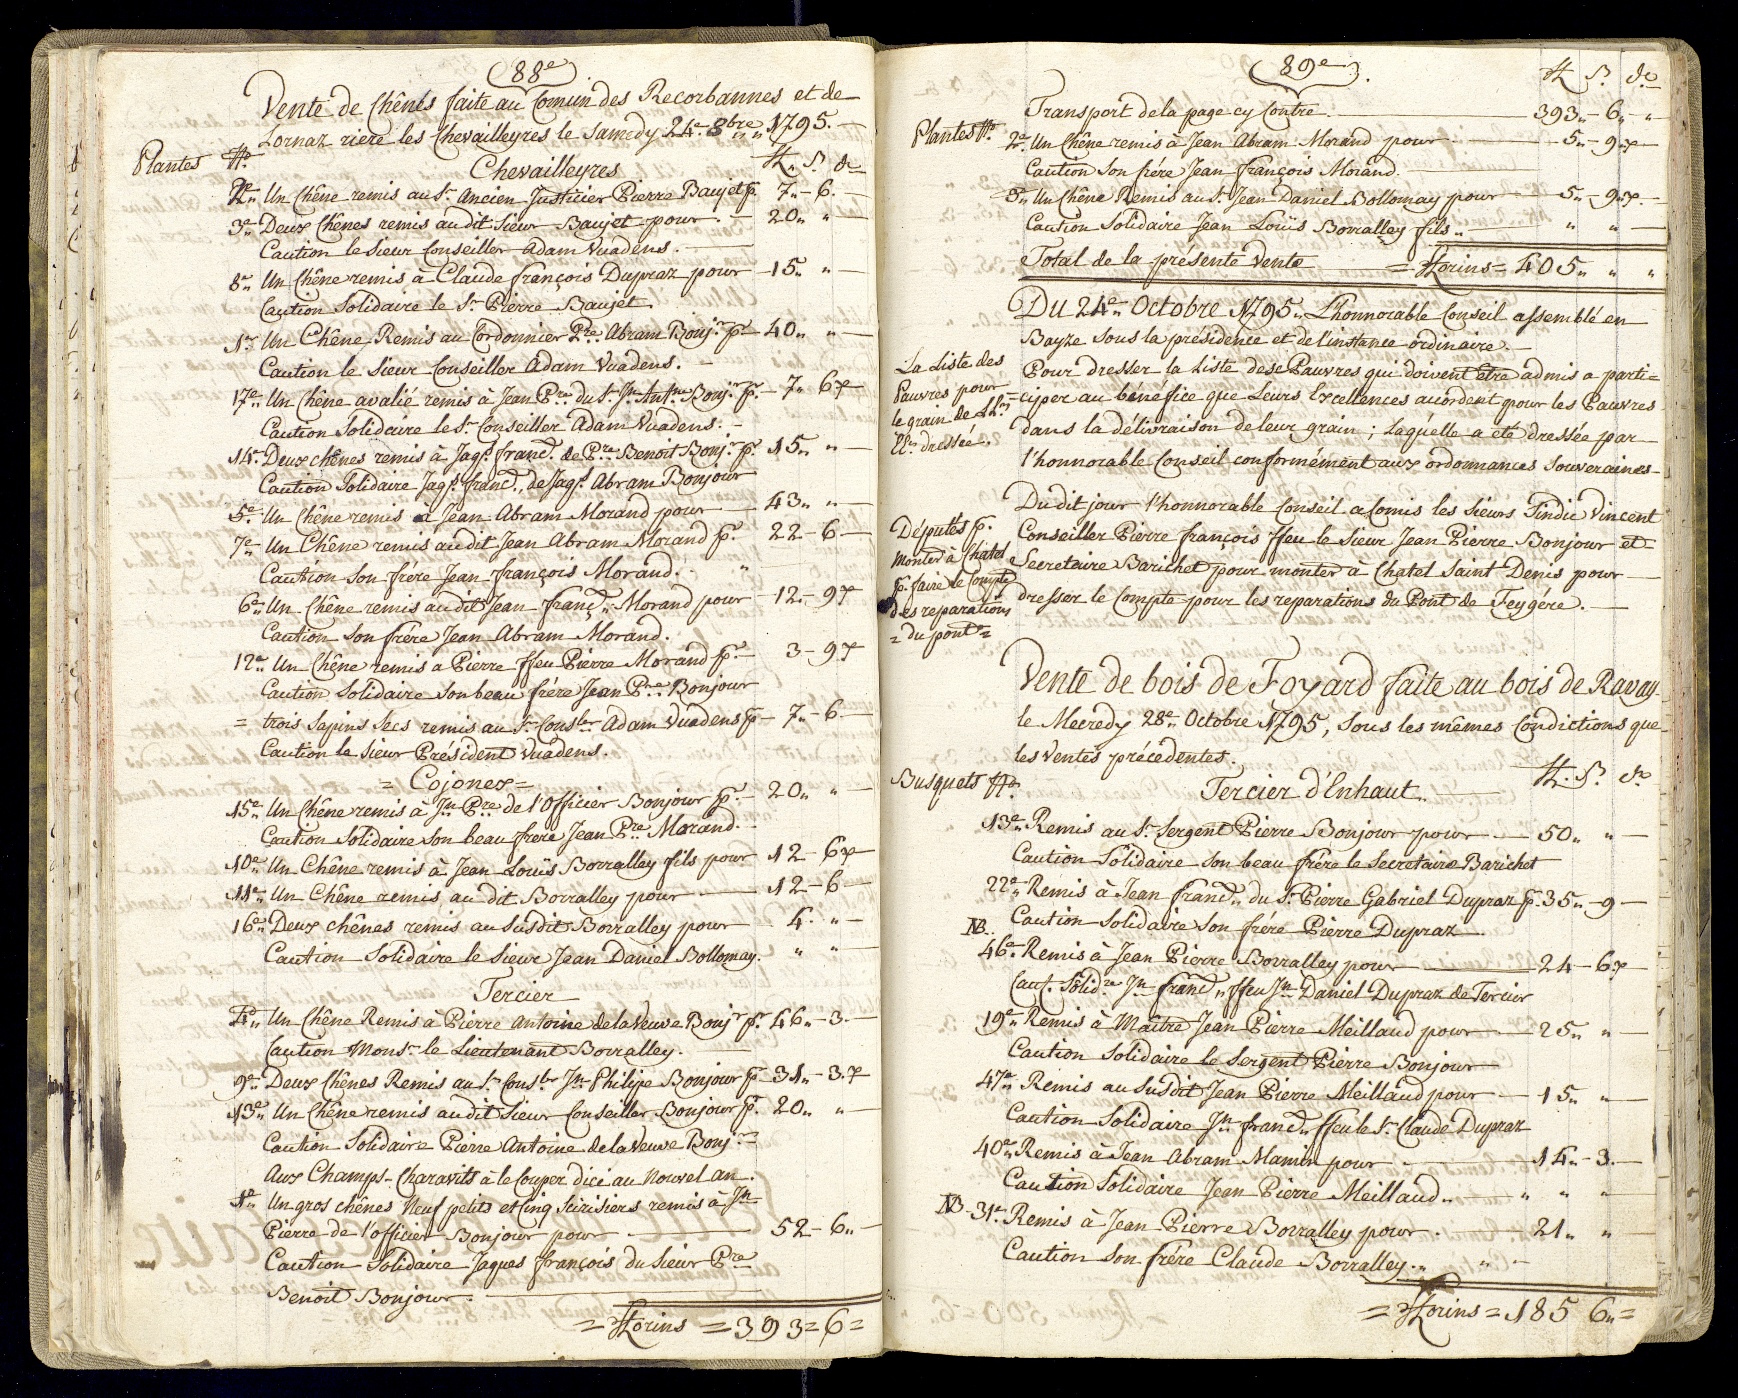 88e
Vente de Chênes faite au Comun des Recorbannes et de
Lornaz riere les Chevailleyres le Samedy 24e 8bre 1795.
Plantes No Chevailleyres fl. s. d.
2e Un Chêne remis au Sr Ancien Justicier Pierre Baujet p. 7 „ 6
3e Deux Chênes remis audit Sieur Baujet pour 20 „ „
Caution le Sieur Conseiller Adam Vuadens.
8e Un Chêne remis à Claude françois Dupraz pour 15 „ „
Caution Solidaire le Sr Pierre Baujet
1er Un Chêne Remis au Cordonnier Pre Abram Bonjr pr 40 „ „
Caution le Sieur Conseiller Adam Vuadens.
17e Un Chêne avalié remis à Jean Pre du Sr Jn Antne Bonjr pr 7 „ 6
Caution Solidaire le Sr Conseiller Adam Vuadens.
14e Deux chênes remis à Jaqs francs de Pre Benoit Bonjr pr 15 „ „
Caution Solidaire Jaqs francs, de Jaqs Abram Bonjour
5e Un Chêne remis a Jean Abram Morand pour 43 „ „
7e Un Chêne remis audit Jean Abram Morand pr 22 - 6
Caution Son frére Jean françois Morand.
6e Un Chêne remis audit Jean franç. Morand pour 12 „ 9
Caution Son frére Jean Abram Morand.
12e Un Chêne remis a Pierre ffeu Pierre Morand pr 3 - 9
Caution Solidaire Son beau frére Jean Pre Bonjour
= trois Sapins Secs remis au Sr Consler Adam Vuadens p 7 „ 6
Caution le Sieur Président Vuadens.
= Cojonex =
15e Un Chêne remis à Jn Pre de l'Officier Bonjour pr 20 „ „
Caution Solidaire Son beau frere Jean Pre Morand.
10e Un Chêne remis à Jean Louïs Borralley fils pour 12 - 6
11e Un Chêne remis au dit Borralley pour 12 - 6
16e Deux chênes remis au Susdit Borralley pour 4 „ „
Caution Solidaire le Sieur Jean Daniel Bollomay. „ „
Tercier
4e Un Chêne Remis à Pierre Antoine de la Veuve Bonjr pr 46 „ 3
Caution Monsr le Lieutenant Borralley.
9e Deux Chênes Remis au Sr Consler Jn Philipe Bonjour p 31 „ 3
13e Un Chêne remis audit Sieur Conseiller Bonjour pr 20 „ „
Caution Solidaire Pierre Antoine de la Veuve Bonjr
Aux Champs-Charavits à le Couper dici au Nouvel an.
1e Un gros chênes Neuf petits et Cinq Seirisiers remis à Jn
Pierre de l'officier Bonjour pour 52 - 6 „
Caution Solidaire Jaques françois du Sieur Pre
Benoit Bonjour.
= fflorins = 393 = 6 =
89e
fl. s. d.
Transport de la page cy Contre 393 „ 6 „ „
Plantes No 2e Un Chêne remis à Jean Abram Morand pour 5 „ 9
Caution Son frére Jean françois Morand.
3e Un Chêne Remis au Sr Jean Daniel Bollomay pour 5 „ 9
Caution Solidaire Jean Louïs Borralley fils „ „ „
Total de la présente Vente = fflorins = 405 „ „ „
Du 24e Octobre 1795. L'honnorable Conseil assemblé en
Bayze Sous la présidence et de l'instance ordinaire.
La Liste des
Pauvres pour
le grain de LLrs
EEces dressée.
Pour dresser la Liste des Pauvres qui doivent être admis a parti=
=ciper au bénéfice que Leurs Excellences accordent pour les Pauvres
dans la délivraison de leur grain ; Laquelle a été dressée par
l'honnorable Conseil conformément aux ordonnances Souveraines
Députés pr
monter à Chatel
pr faire le Compte
des reparations
= du pont =
Du dit jour l'honnorable Conseil a Comis les Sieurs Sindic Vincent
Conseiller Pierre françois ffeu le Sieur Jean Pierre Bonjour et
Secretaire Barichet pour monter à Chatel Saint Denis pour
dresser le Compte pour les reparations du Pont de Feygére.
Vente de bois de Foyard faite au bois de Ravay
le Mecredy 28e Octobre 1795, Sous les mêmes Condictions que
les Ventes précedentes.
Busquets No Tercier d'Enhaut fl. s. d.
13e Remis au Sr Sergent Pierre Bonjour pour 50 „ „
Caution Solidaire Son beau frére le Secretaire Barichet
22e Remis à Jean francs du Sr Pierre Gabriel Dupraz pr 35 „ 9
Caution Solidaire Son frére Pierre Dupraz
NB.
46e Remis à Jean Pierre Borralley pour 24 - 6
Caut. Solidre Jn francs ffeu Jn Daniel Dupraz de Tercier
19e Remis à Maitre Jean Pierre Meillaud pour 25 „ „
Caution Solidaire le Sergent Pierre Bonjour
47e Remis au Susdit Jean Pierre Meillaud pour 15 „ „
Caution Solidaire Jn francs ffeu le Sr Claude Dupraz
40e Remis à Jean Abram Mamin pour 14 „ 3
Caution Solidaire Jean Pierre Meillaud „ „ „
NB 31e Remis à Jean Pierre Borralley pour 21 „ „
Caution Son frére Claude Borralley „ „
= fflorins = 185 6 „ =